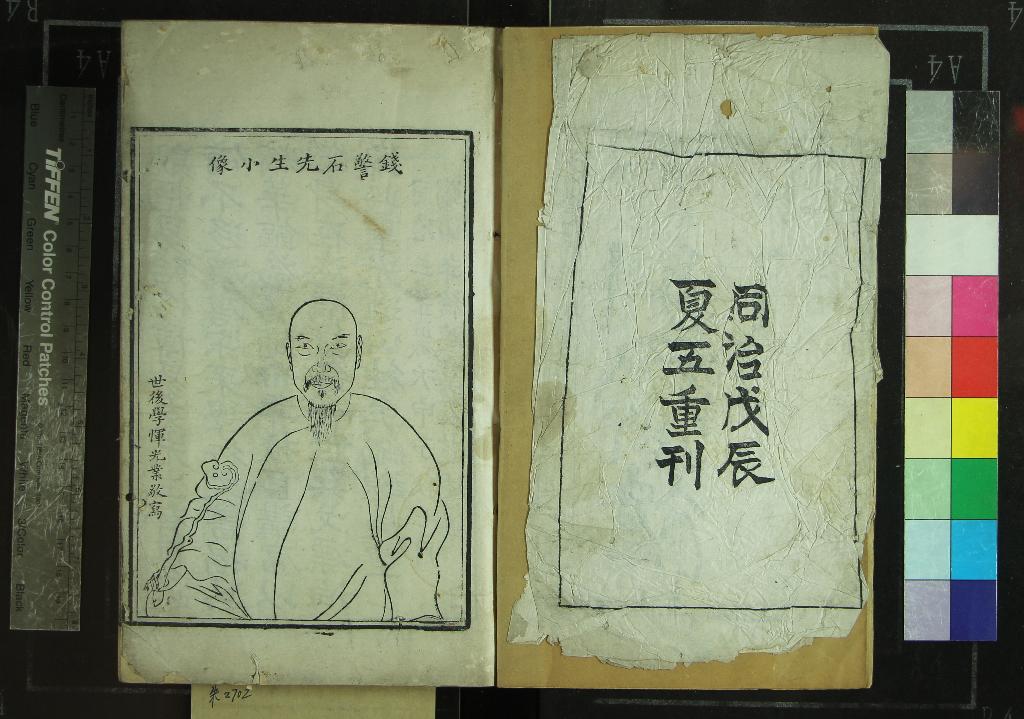 同治戊辰
夏五重刊
錢警石先生小像
世後學惲光業敬寫
朱2702
TIFFEN Color Control Patches
Blue
Cyan
Green
Yellow
Red
Magenta
White
3/Color
Black
Centimetres
A4
A4